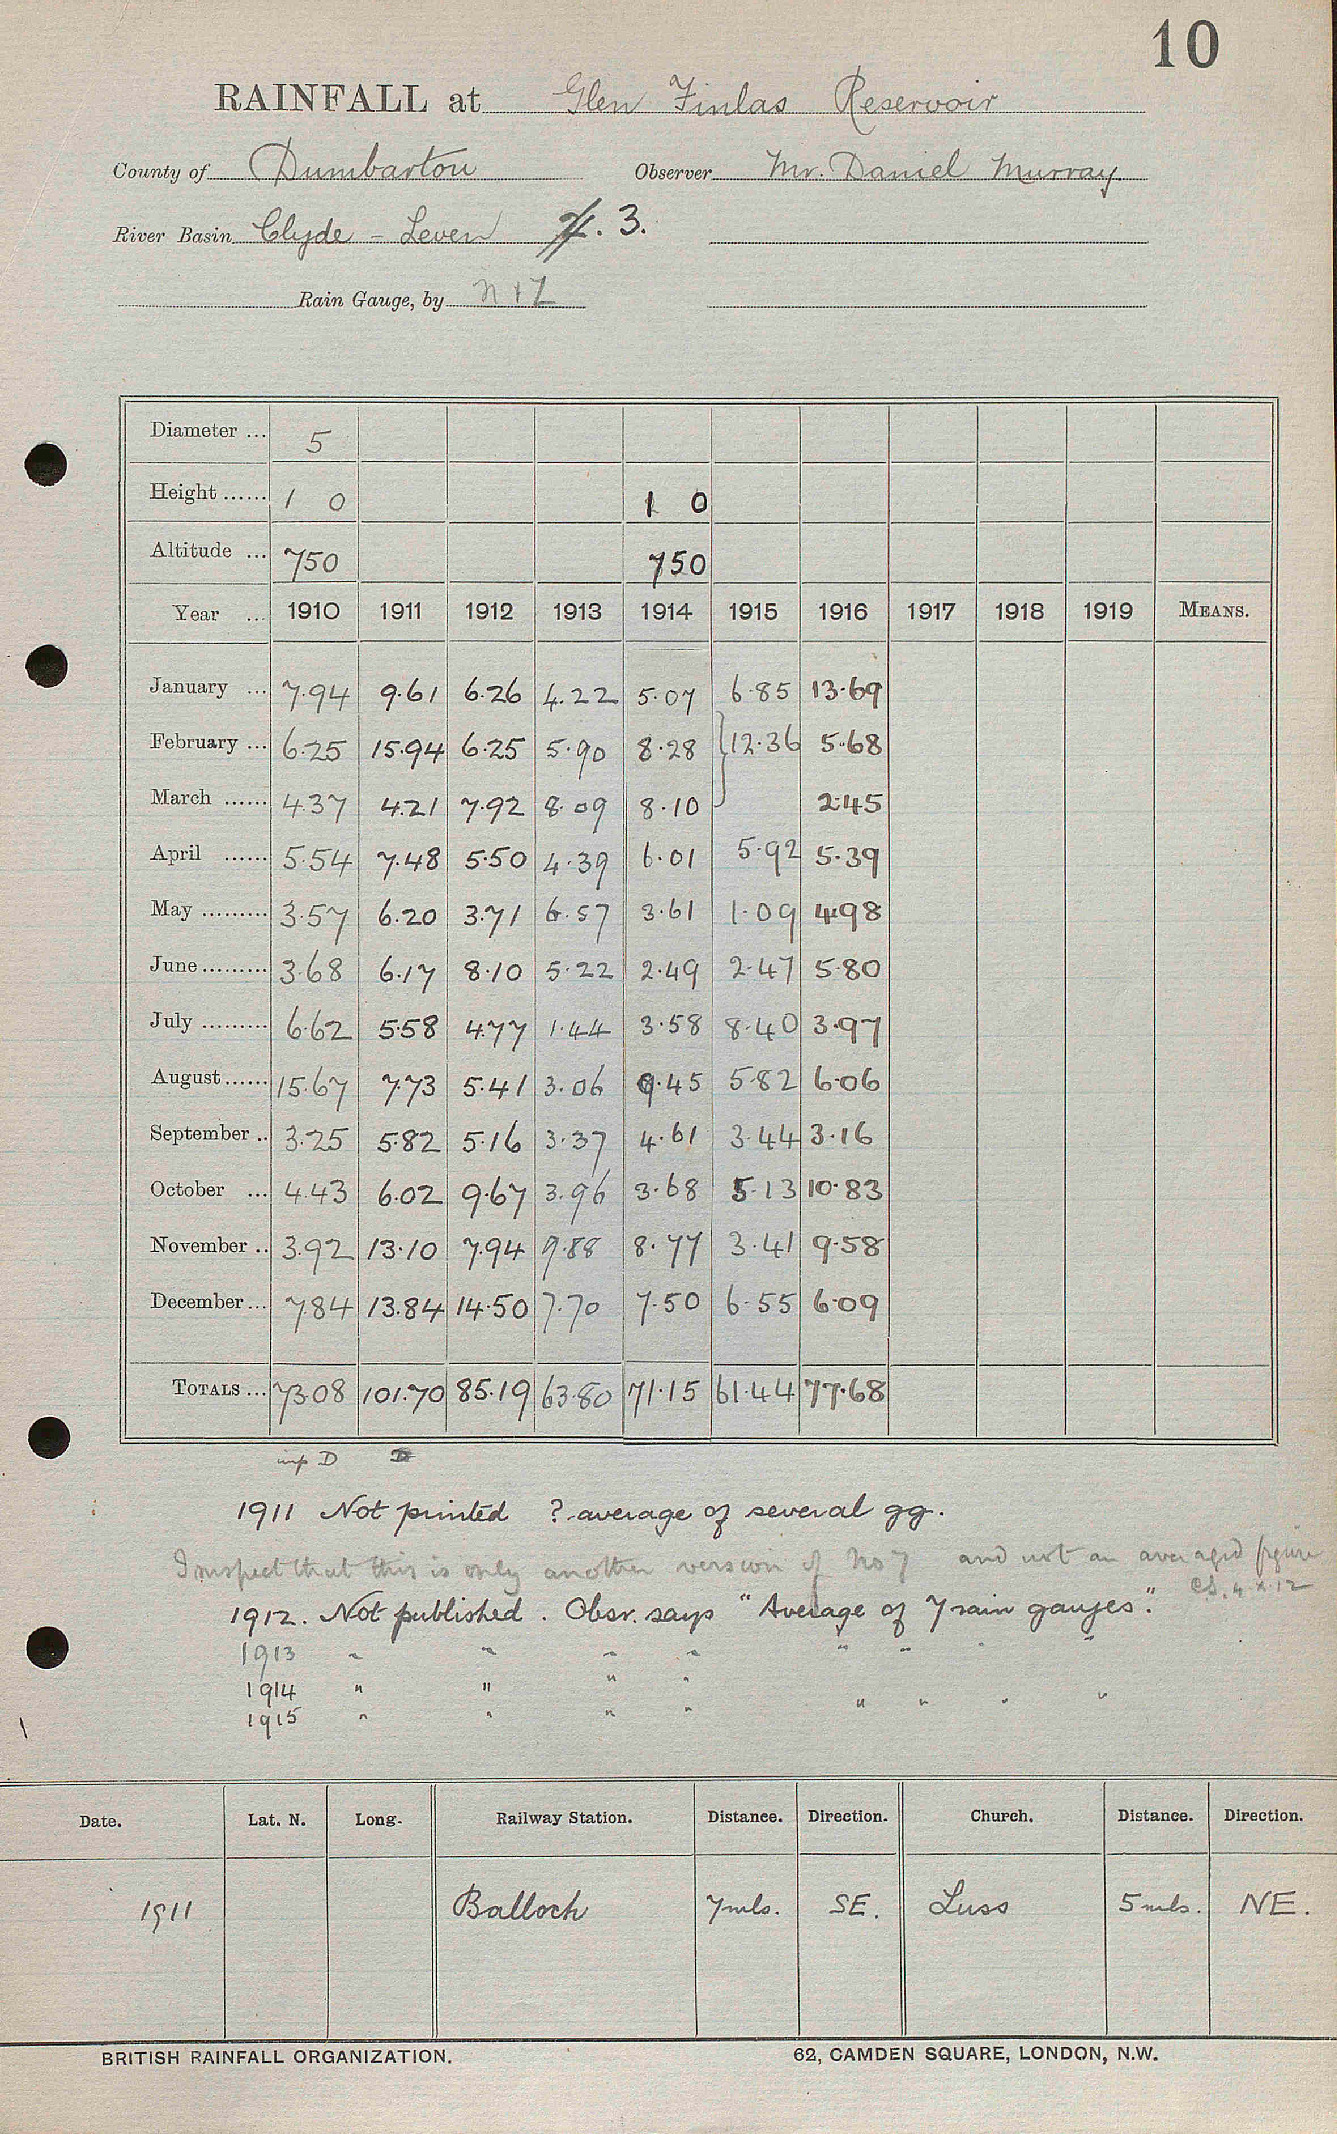 10
RAINFALL at Glen Finlas Reservoir
County of Dumbarton Observer Mr. Daniel Murray
River Basin Clyde - Leven 3.
Rain Gauge, by N + Z
Diameter ... 5
Height ...... 1 0 1 0
Altitude ... 750 750
Year ... 1910 1911 1912 1913 1914 1915 1916 1917 1918 1919 MEANS.
January ... 7.94 9.61 6.26 4.22 5.07 6.85 13.69
February ... 6.25 15.94 6.25 5.90 8.28 } 12.36 5.68
March ...... 4.37 4.21 7.92 8.09 8.10 2.45
April ...... 5.54 7.48 5.50 4.39 6.01 5.92 5.39
May ......... 3.57 6.20 3.71 6.57 3.61 1.09 4.98
June ......... 3.68 6.17 8.10 5.22 2.49 2.47 5.80
July ......... 6.62 5.58 4.77 1.44 3.58 8.40 3.97
August ...... 15.67 7.73 5.41 3.06 9.45 5.82 6.06
September .. 3.25 5.82 5.16 3.37 4.61 3.44 3.16
October ... 4.43 6.02 9.67 3.96 3.68 5.13 10.83
November .. 3.92 13.10 7.94 9.88 8.77 3.41 9.58
December ... 7.84 13.84 14.50 7.70 7.50 6.55 6.09
TOTALS ... 73.08 101.70 85.19 63.80 71.15 61.44 77.68
D D
1911 Not printed ? average of several gg.
I suspect that this is only another version of No 7 and not an averaged figure
4.X.12
1912. Not published. Obsr. says "Average of 7 rain gauges".
1913 " " " " " " " "
1914 " " " "
1915 " " " " " " " "
Date. Lat. N. Long. Railway Station. Distance. Direction. Church. Distance. Direction.
1911 Balloch 7 mls. SE. Luss 5 mls. NE.
BRITISH RAINFALL ORGANIZATION. 62, CAMDEN SQUARE, LONDON, N.W.